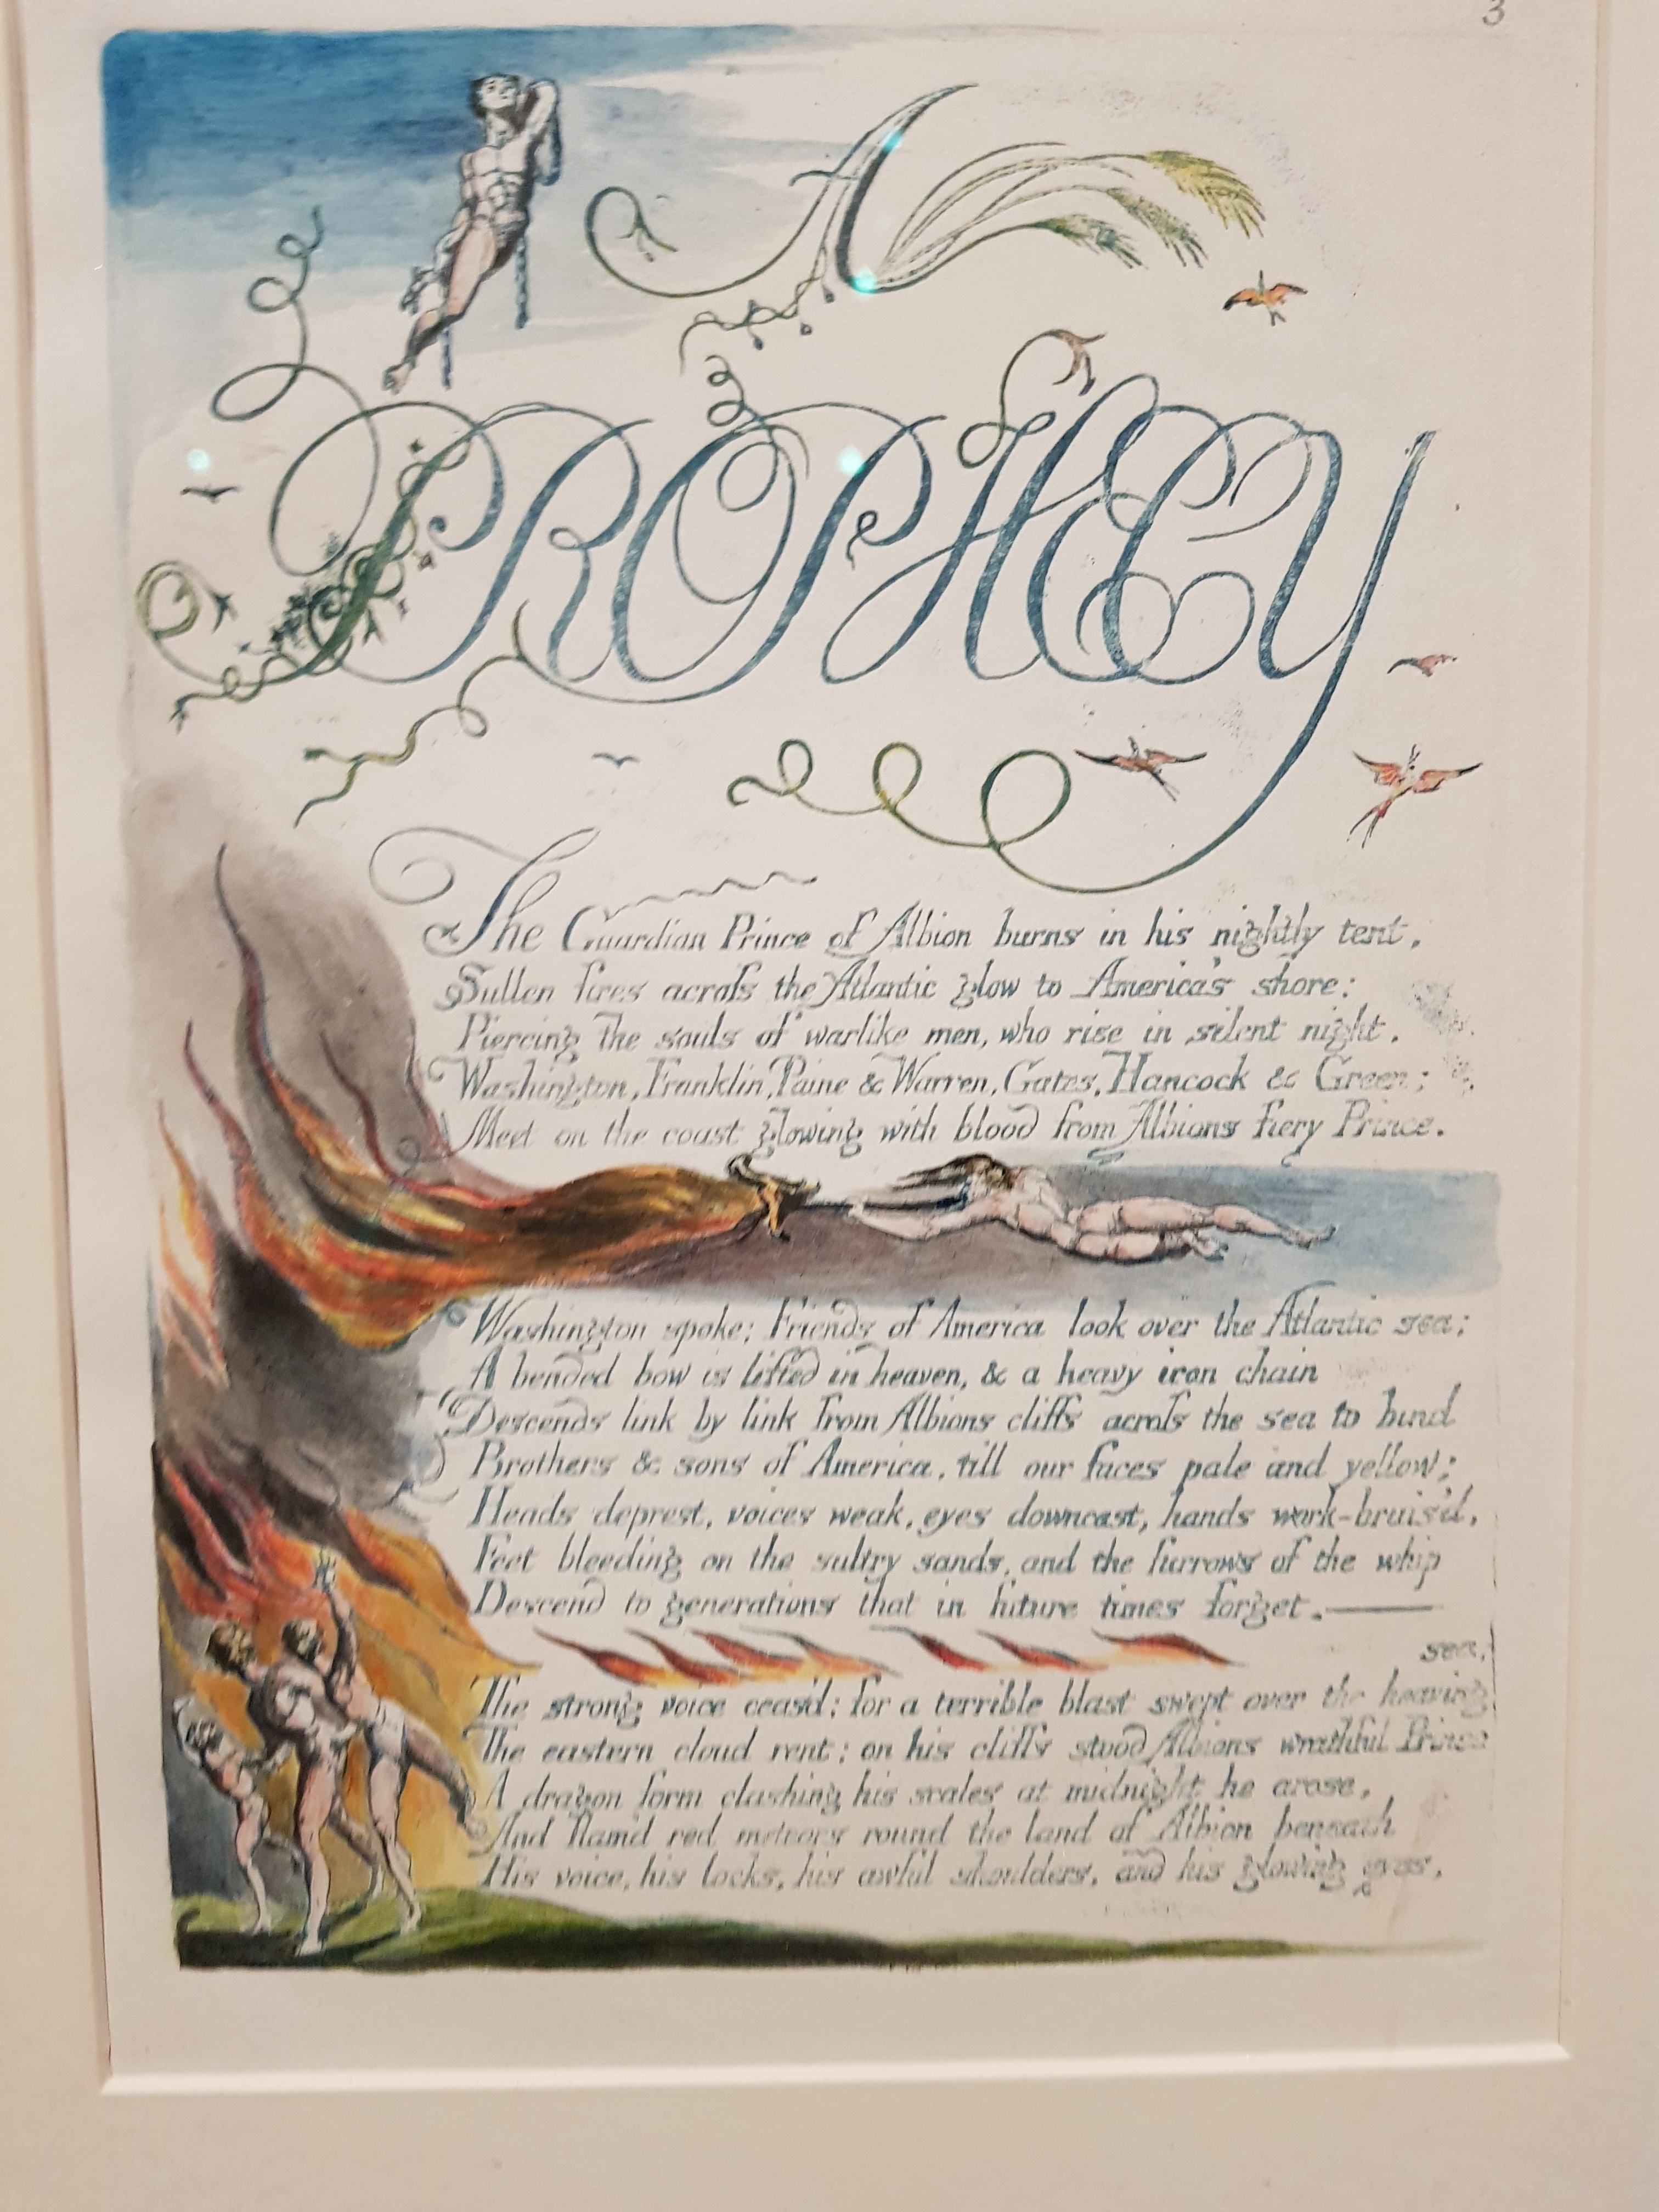 3
A
PROPHECY
The Guardian Prince of Albion burns in his nightly tent,
Sullen fires across the Atlantic glow to America's shore:
Piercing the souls of warlike men, who rise in silent night,
Washington, Franklin, Paine & Warren, Gates, Hancock & Green;
Meet on the coast glowing with blood from Albions fiery Prince.
Washington spoke; Friends of America look over the Atlantic sea;
A bended bow is lifted in heaven, & a heavy iron chain
Descends link by link from Albions cliffs across the sea to bind
Brothers & sons of America, till our faces pale and yellow;
Heads deprest, voices weak, eyes downcast, hands work-bruis'd,
Feet bleeding on the sultry sands, and the furrows of the whip
Descend to generations that in future times forget.
sea;
The strong voice ceas'd; for a terrible blast swept over the heaving
The eastern cloud rent; on his cliffs stood Albions wrathful Prince
A dragon form clashing his scales at midnight he arose,
And flam'd red meteors round the land of Albion beneath
His voice, his locks, his awful shoulders, and his glowing eyes,